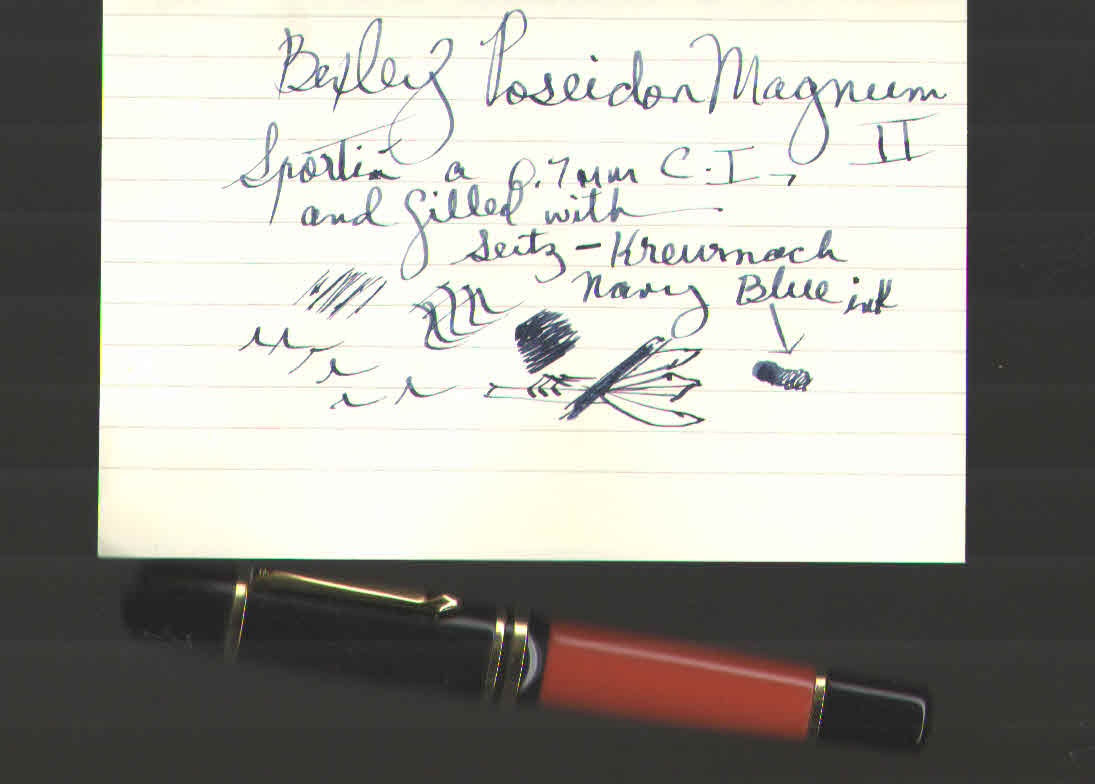 Bexley Poseidon Magnum
II
Sportin a 0.7mm C.I,
and filled with
Seitz-Kreuznach
Navy Blue ink